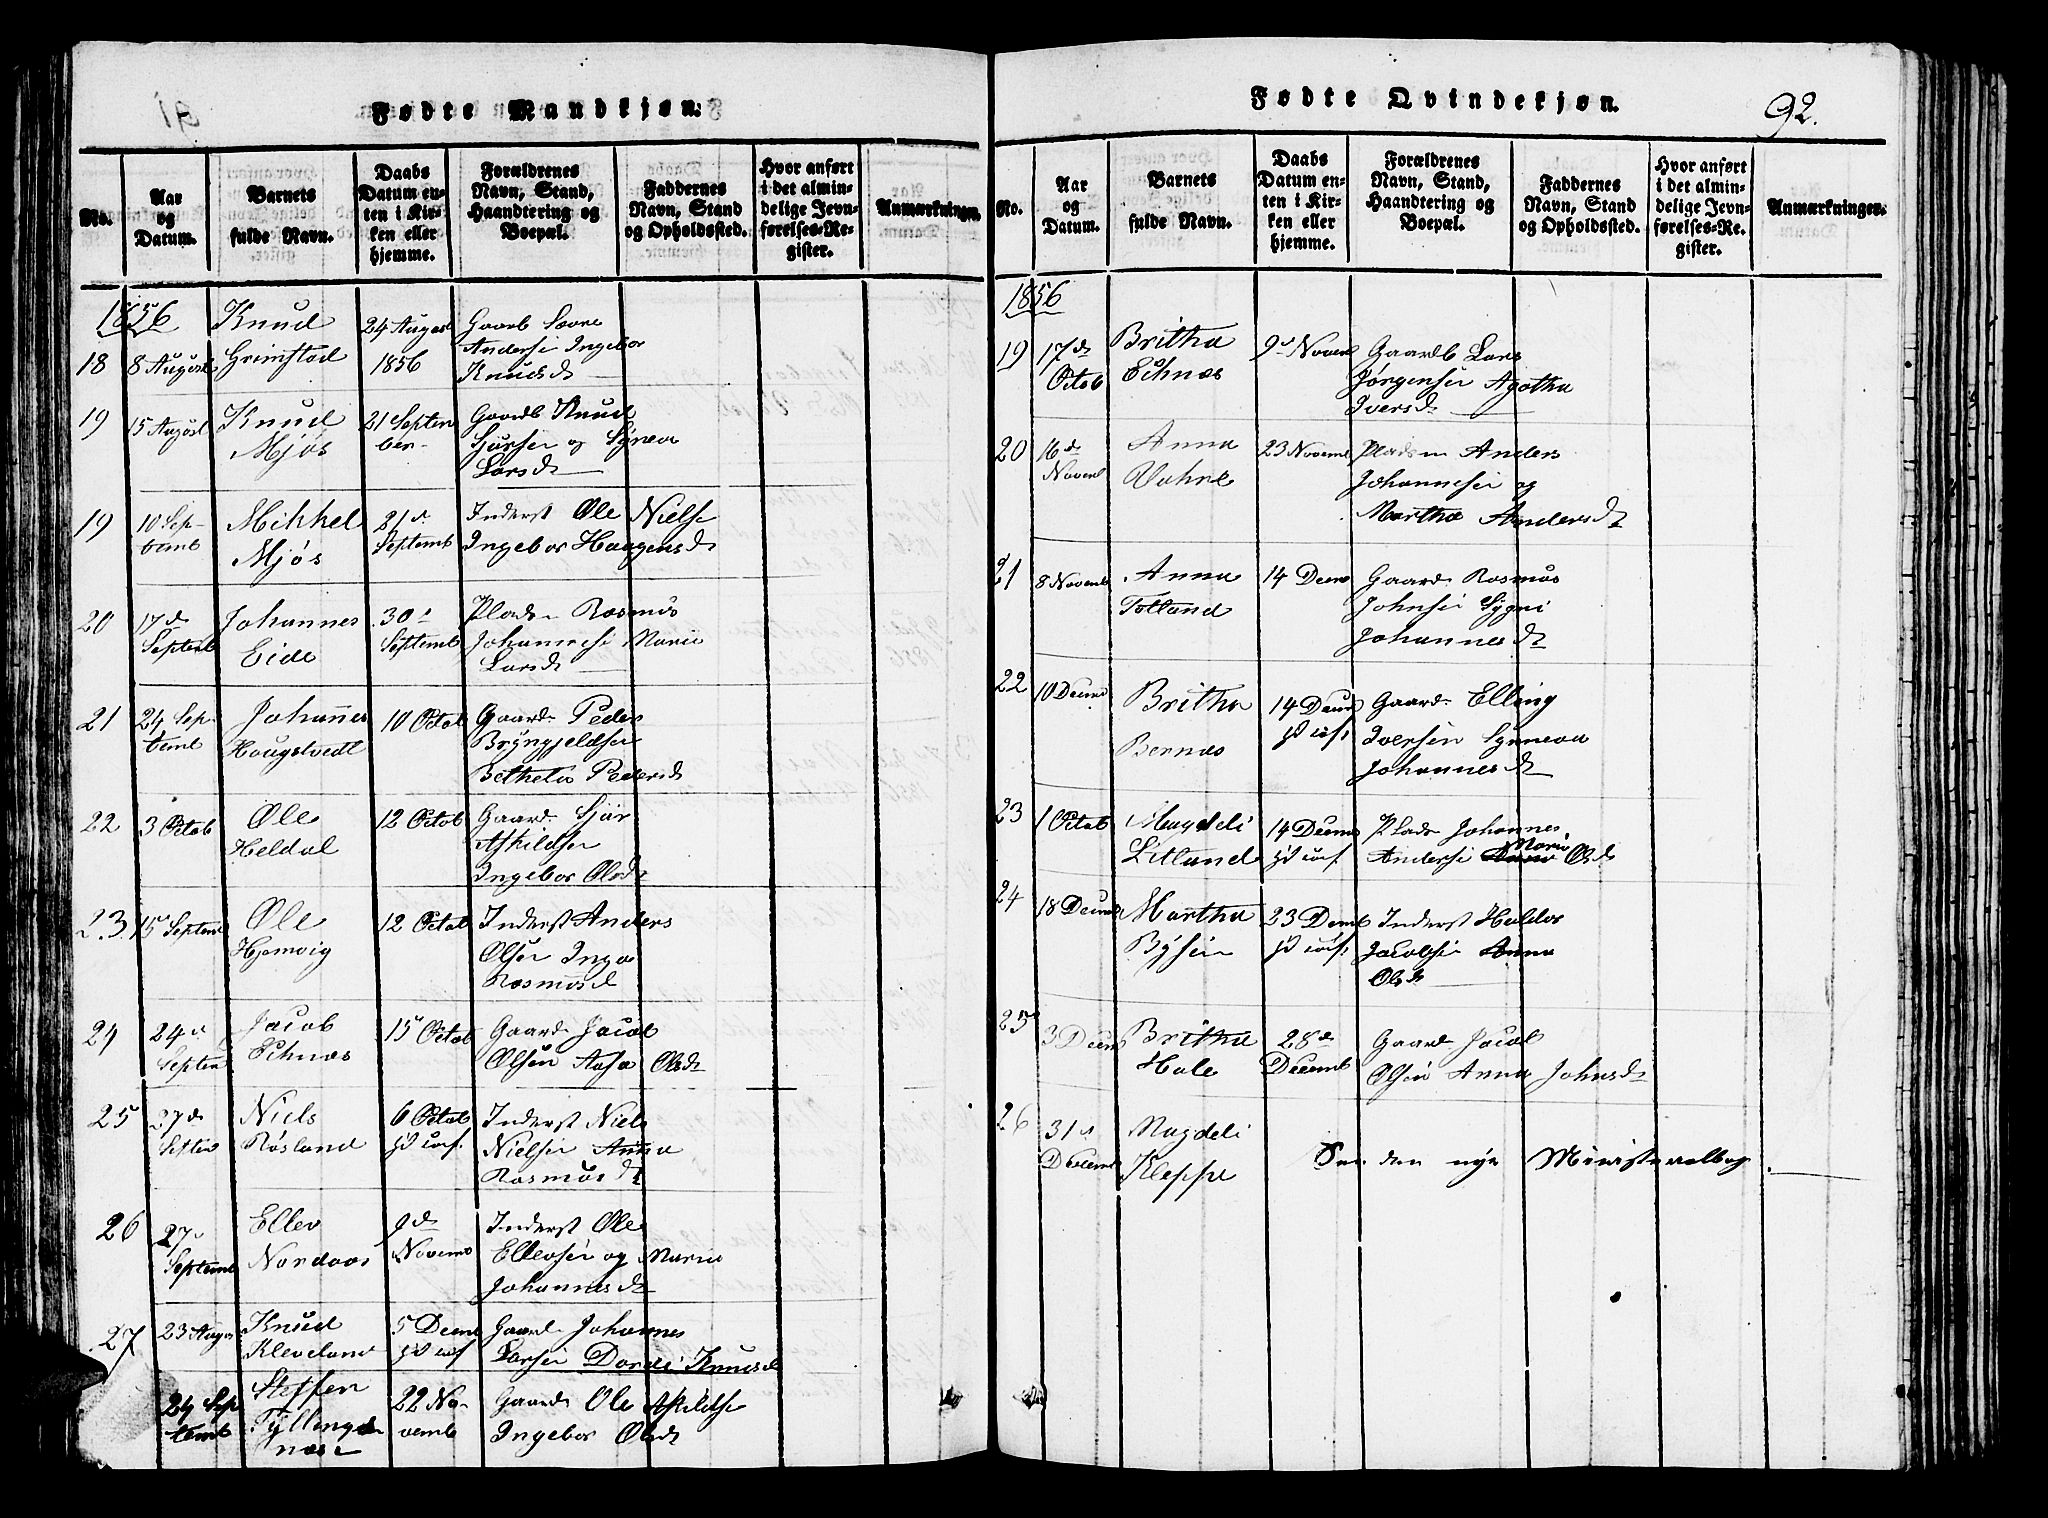 Fødte Mandkjøn.
No.
Aar og Datum.
Barnets fulde Navn.
Daabs Datum enten i Kirken eller hjemme.
Forældrenes Navn, Stand, Haandtering og Boepæl.
Faddernes Navn, Stand og Opholdssted.
Hvor anført i det almindelige Jevnførelses-Register.
Anmærkninger.
1856
18 8 August Knud Grimstad 24 August 1856 Gaardb Anders Ingebor Knudsd
19 15 August Knud Mjøs 21 September Gaardb Knud Sjursen og Synneva Larsd
19 10 Septemb Mikkel Mjøs 21d Septemb Inderst Ole Nielse Ingebor Haagensd
20 17d Septemb Johannes Eide 30d Septemb Plads Rasmus Johannese Marie Larsd
21 24 Septemb Johannes Hougstvedt 10 Octob Gaard Peder Brÿngjeldse Bethelia Pedersd
22 3 Octob Ole Heldal 12 Octob Gaard Sjur Askildse Ingebor Olsd
23. 15 Septemb Ole Hjemvig 12 Octob Inderst Anders Olsen Inga Rasmusd
24 24d Septem Jacob Echnæs 15 Octob Gaard Jacob Olsen Aasa Olsd
25 27d Septem Niels Røsland 6 Octob Inderst Niels Nielsen Anna Rasmusd
26 27d Septemb Ellev Nordaas 9d Novemb Inderst Ole Ellevsen og Marie Johannesd
27 23 Augus Knud Kleveland 5 Decemb Gaard Johannes Larsen Dordi Knudsd
24 Septemb Steffen Tÿllingdnæs 22 Novemb Gaard Ole Askildse Ingebor Olsd
Fødte Qvindekjøn.
92.
No.
Aar og Datum.
Barnets fulde Navn.
Daabs Datum enten i Kirken eller hjemme.
Forældrenes Navn, Stand, Haandtering og Boepæl.
Faddernes Navn, Stand og Opholdssted.
Hvor anført i det almindelige Jevnførelses-Register.
Anmærkninger.
1856
19 17d Octob Britha Echnæs 9d Novem Gaardb Lars Jørgensen Agatha Iversd
20 16d Novemb Anna 23 Novemb Plads Anders Johannesen og Martha Andersd
21 8 Novemb Anna Totland 14 Decm Gaard Rasmus Johnsen Sygni Johannesd
22 10 Decemb Britha Bernæs 14 Decemb Gaard Elling Iversen Synneva Johannesd
23 1 Octob Magdeli Litland 14 Decemb Plads Johannes Andersen Marie Olsd
24 18 Decemb Martha Bÿsen 23 Decemb Inderst Haldor Jacobsen Anna Olsd
25 3 Decemb Britha Hole 28d Decemb Gaard Jacob Olsen Anna Johnsd
26 31d Decemb Magdeli Kleppe See den nye Ministerialbog